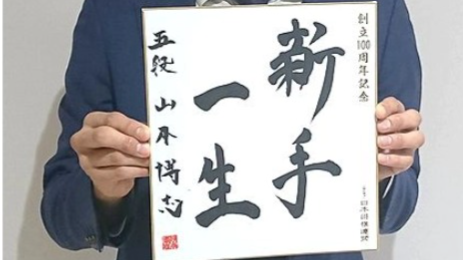 創立100周年記念
新手
一生
五段 山本博志
日本将棋連盟